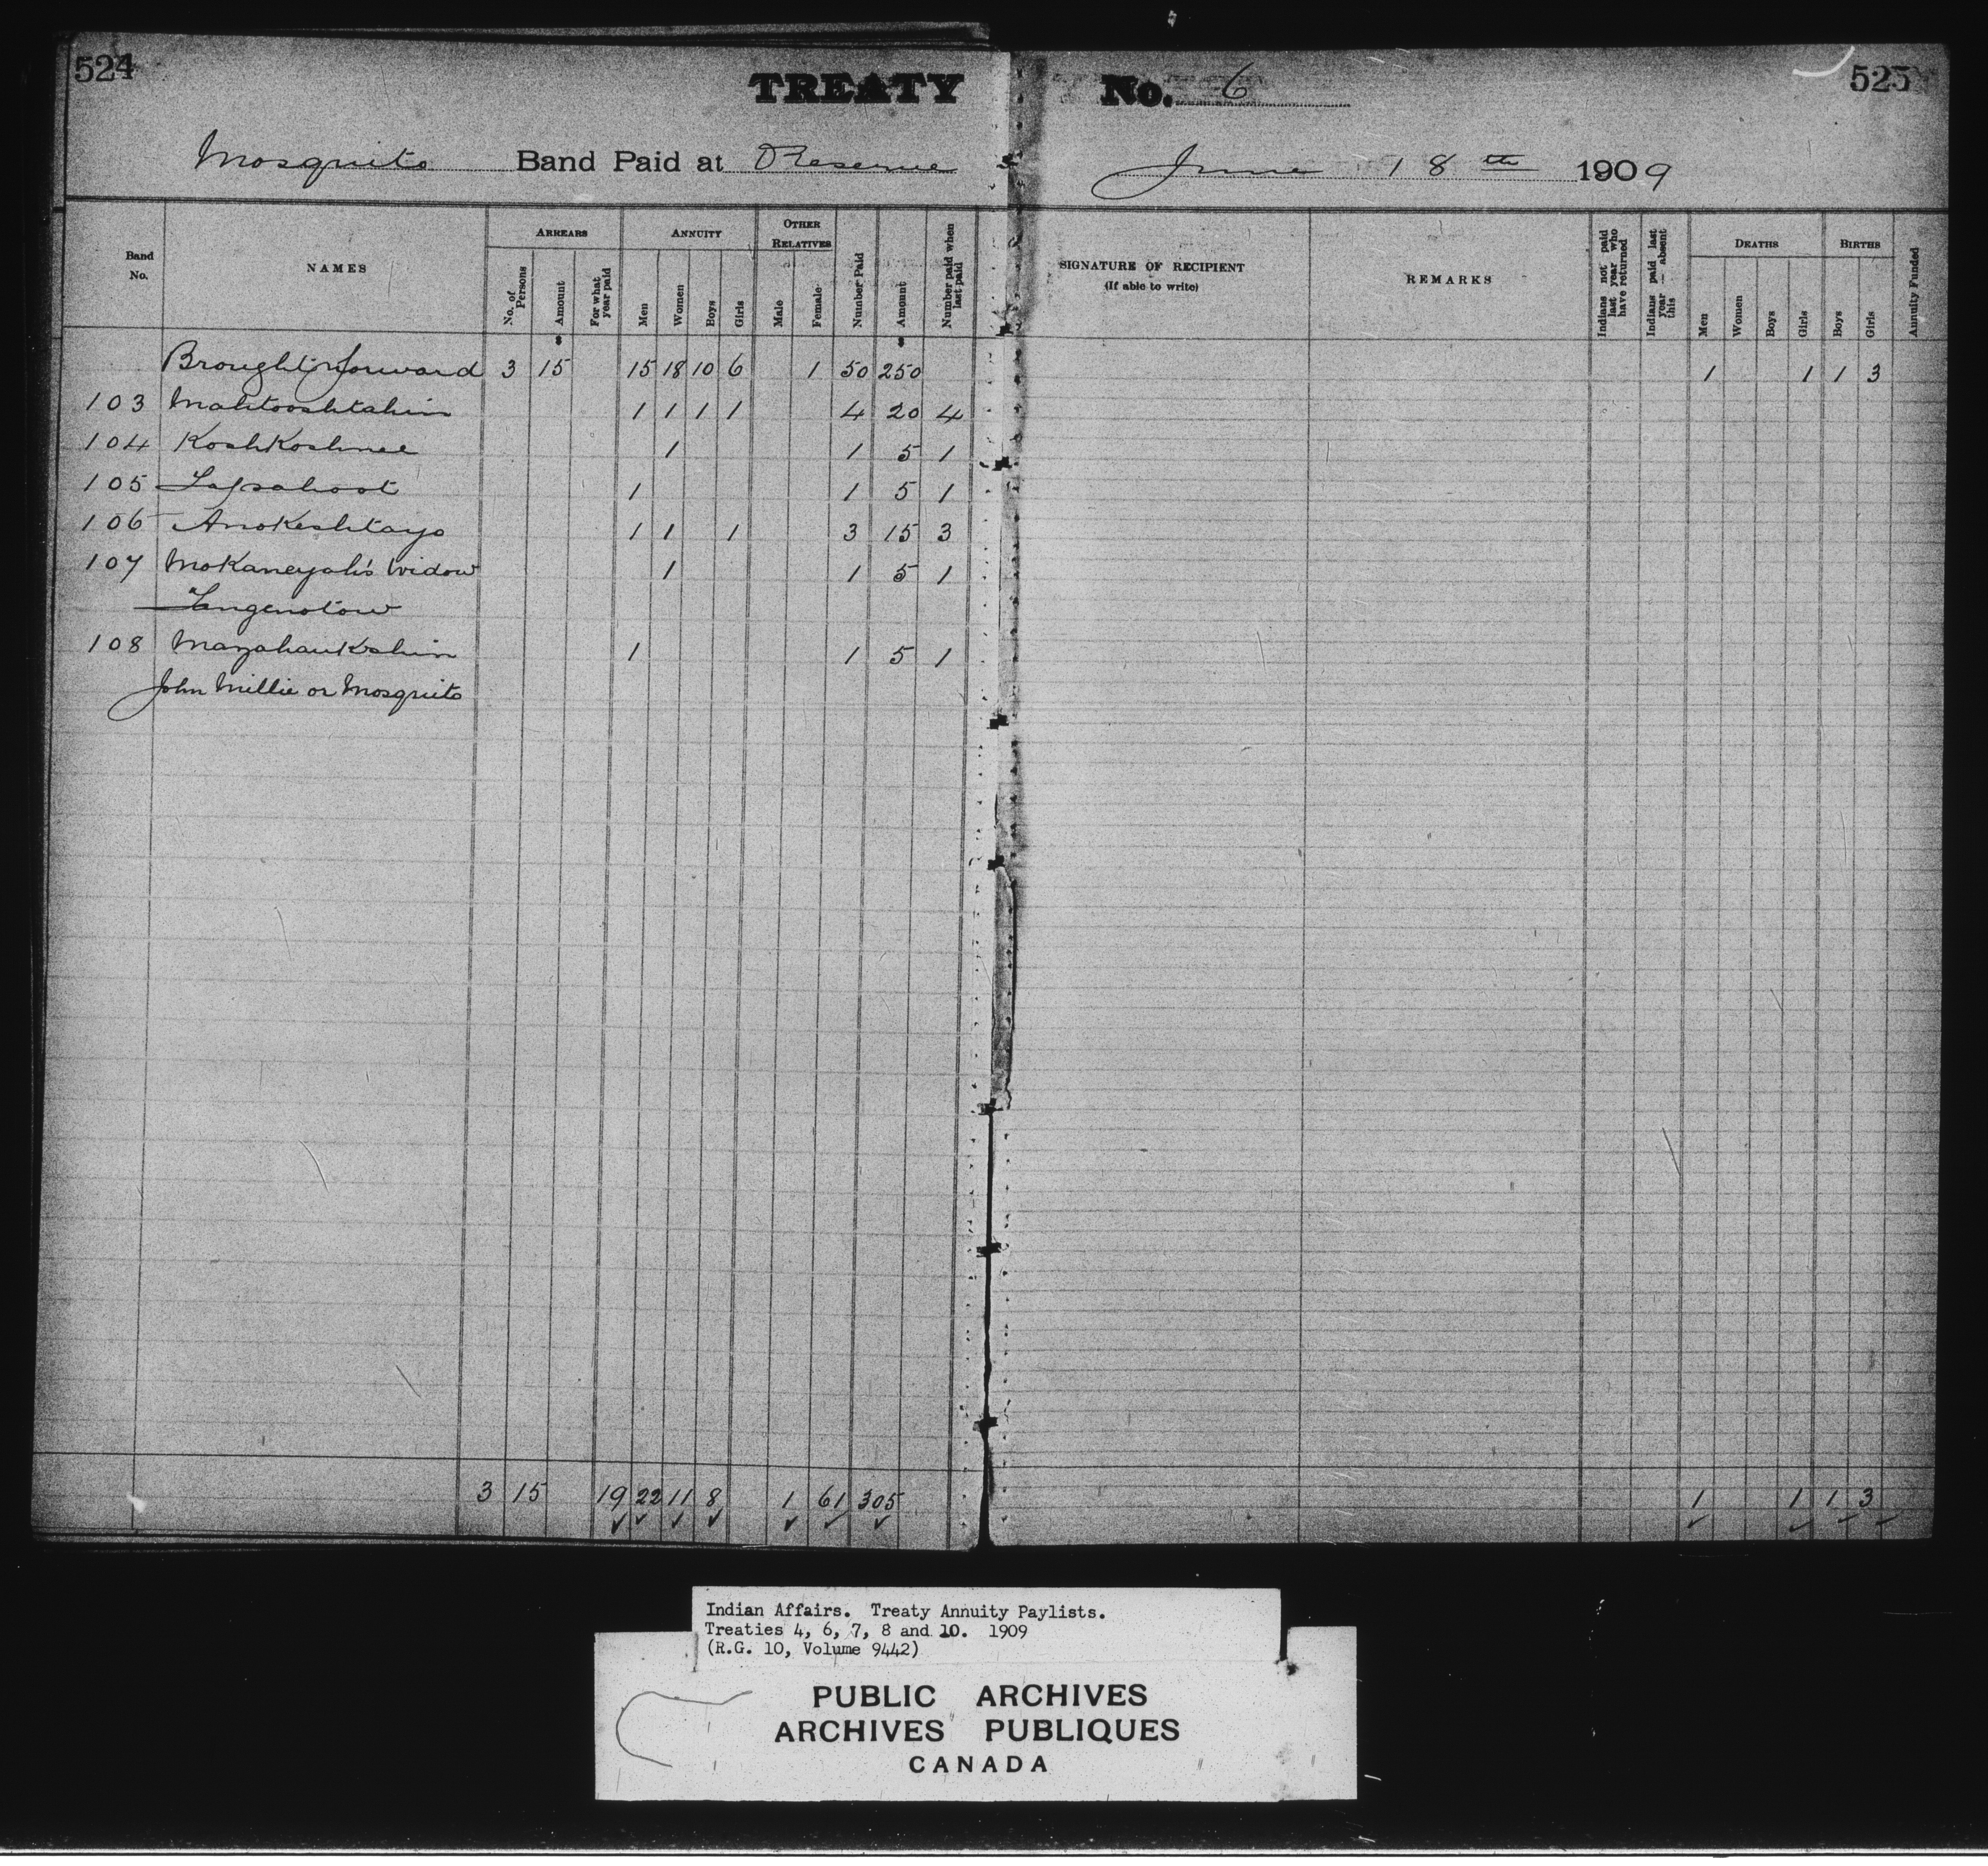 524 TREATY No. 6 525
Mosquito Band Paid at Reserve June 18th 1909
Band No.
NAMES
ARREARS
No. of Persons
Amount
For what year paid
ANNUITY
Men
Women
Boys
Girls
OTHER RELATIVES
Male
Female
Number Paid
Amount
Number paid when last paid
SIGNATURE OF RECIPIENT
(If able to write)
REMARKS
Indians not paid last year who have returned
Indians paid last year — absent this
DEATHS
Men
Women
Boys
Girls
BIRTHS
Boys
Girls
Annuity Funded
Brought forward 3 15 15 18 10 6 1 50 250 1 1 1 3
103 Mahtooshtahin 1 1 1 1 4 20 4
104 KoshKoshnee 1 1 5 1
105 1 1 5 1
106 Anokeshtayo 1 1 1 3 15 3
107 Mokaneyah's Widow 1 1 5 1
Tangenotow
108 Mazahaukshin 1 1 5 1
John Millie or Mosquito
3 15 19 22 11 8 1 61 305 1 1 1 3
Indian Affairs. Treaty Annuity Paylists.
Treaties 4, 6, 7, 8 and 10. 1909
(R.G. 10, Volume 9442)
PUBLIC ARCHIVES
ARCHIVES PUBLIQUES
CANADA